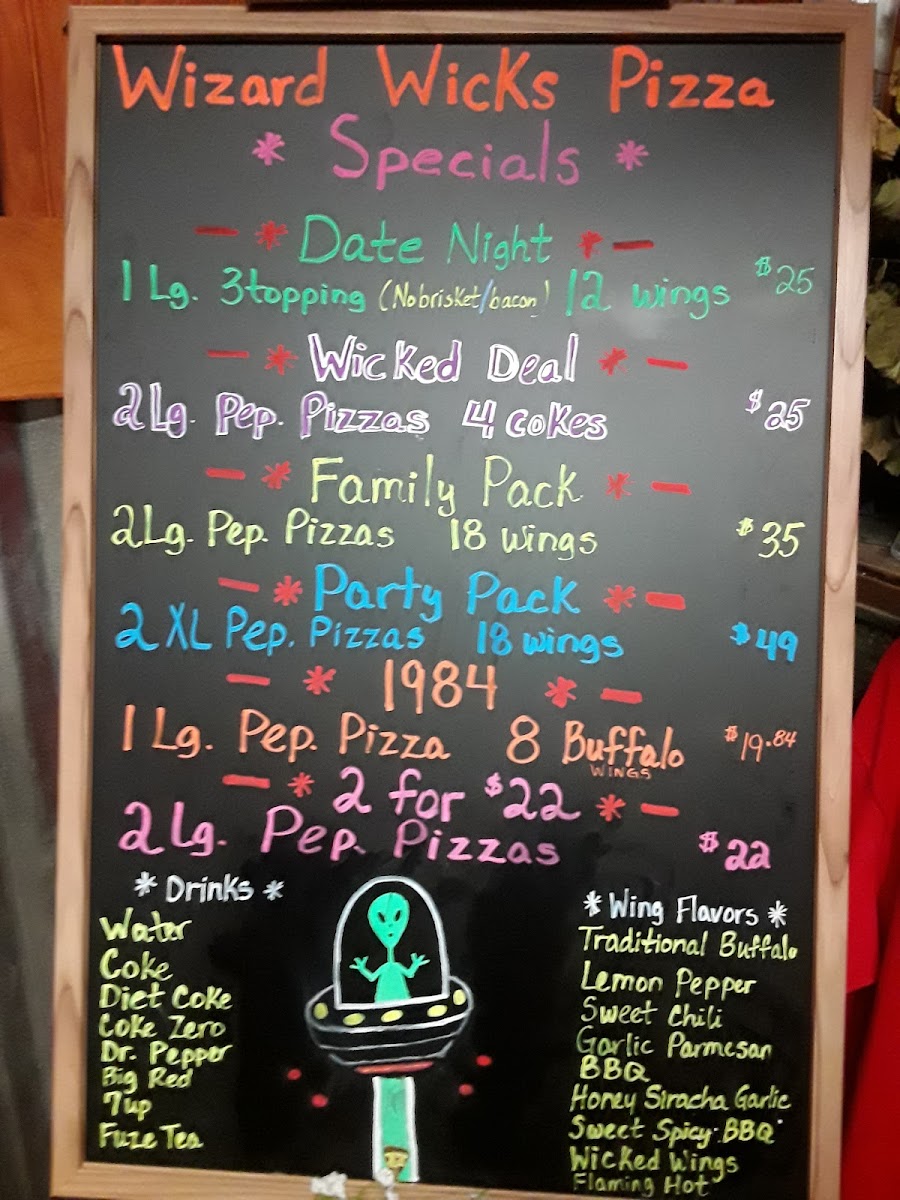 Wizard Wicks Pizza
* Specials *
- * Date Night * -
1 Lg. 3topping (No brisket/bacon) 12 wings $25
- * Wicked Deal * -
2 Lg. Pep. Pizzas 4 cokes $25
- * Family Pack * -
2 Lg. Pep. Pizzas 18 wings $35
- * Party Pack * -
2 XL Pep. Pizzas 18 wings $49
- * 1984 * -
1 Lg. Pep. Pizza 8 Buffalo $19.84
WINGS
- * 2 for $22 * -
2 Lg. Pep. Pizzas $22
* Drinks *
Water
Coke
Diet Coke
Coke Zero
Dr. Pepper
Big Red
7up
Fuze Tea
* Wing Flavors *
Traditional Buffalo
Lemon Pepper
Sweet Chili
Garlic Parmesan
BBQ
Honey Siracha Garlic
Sweet Spicy BBQ
Wicked Wings
Flaming Hot